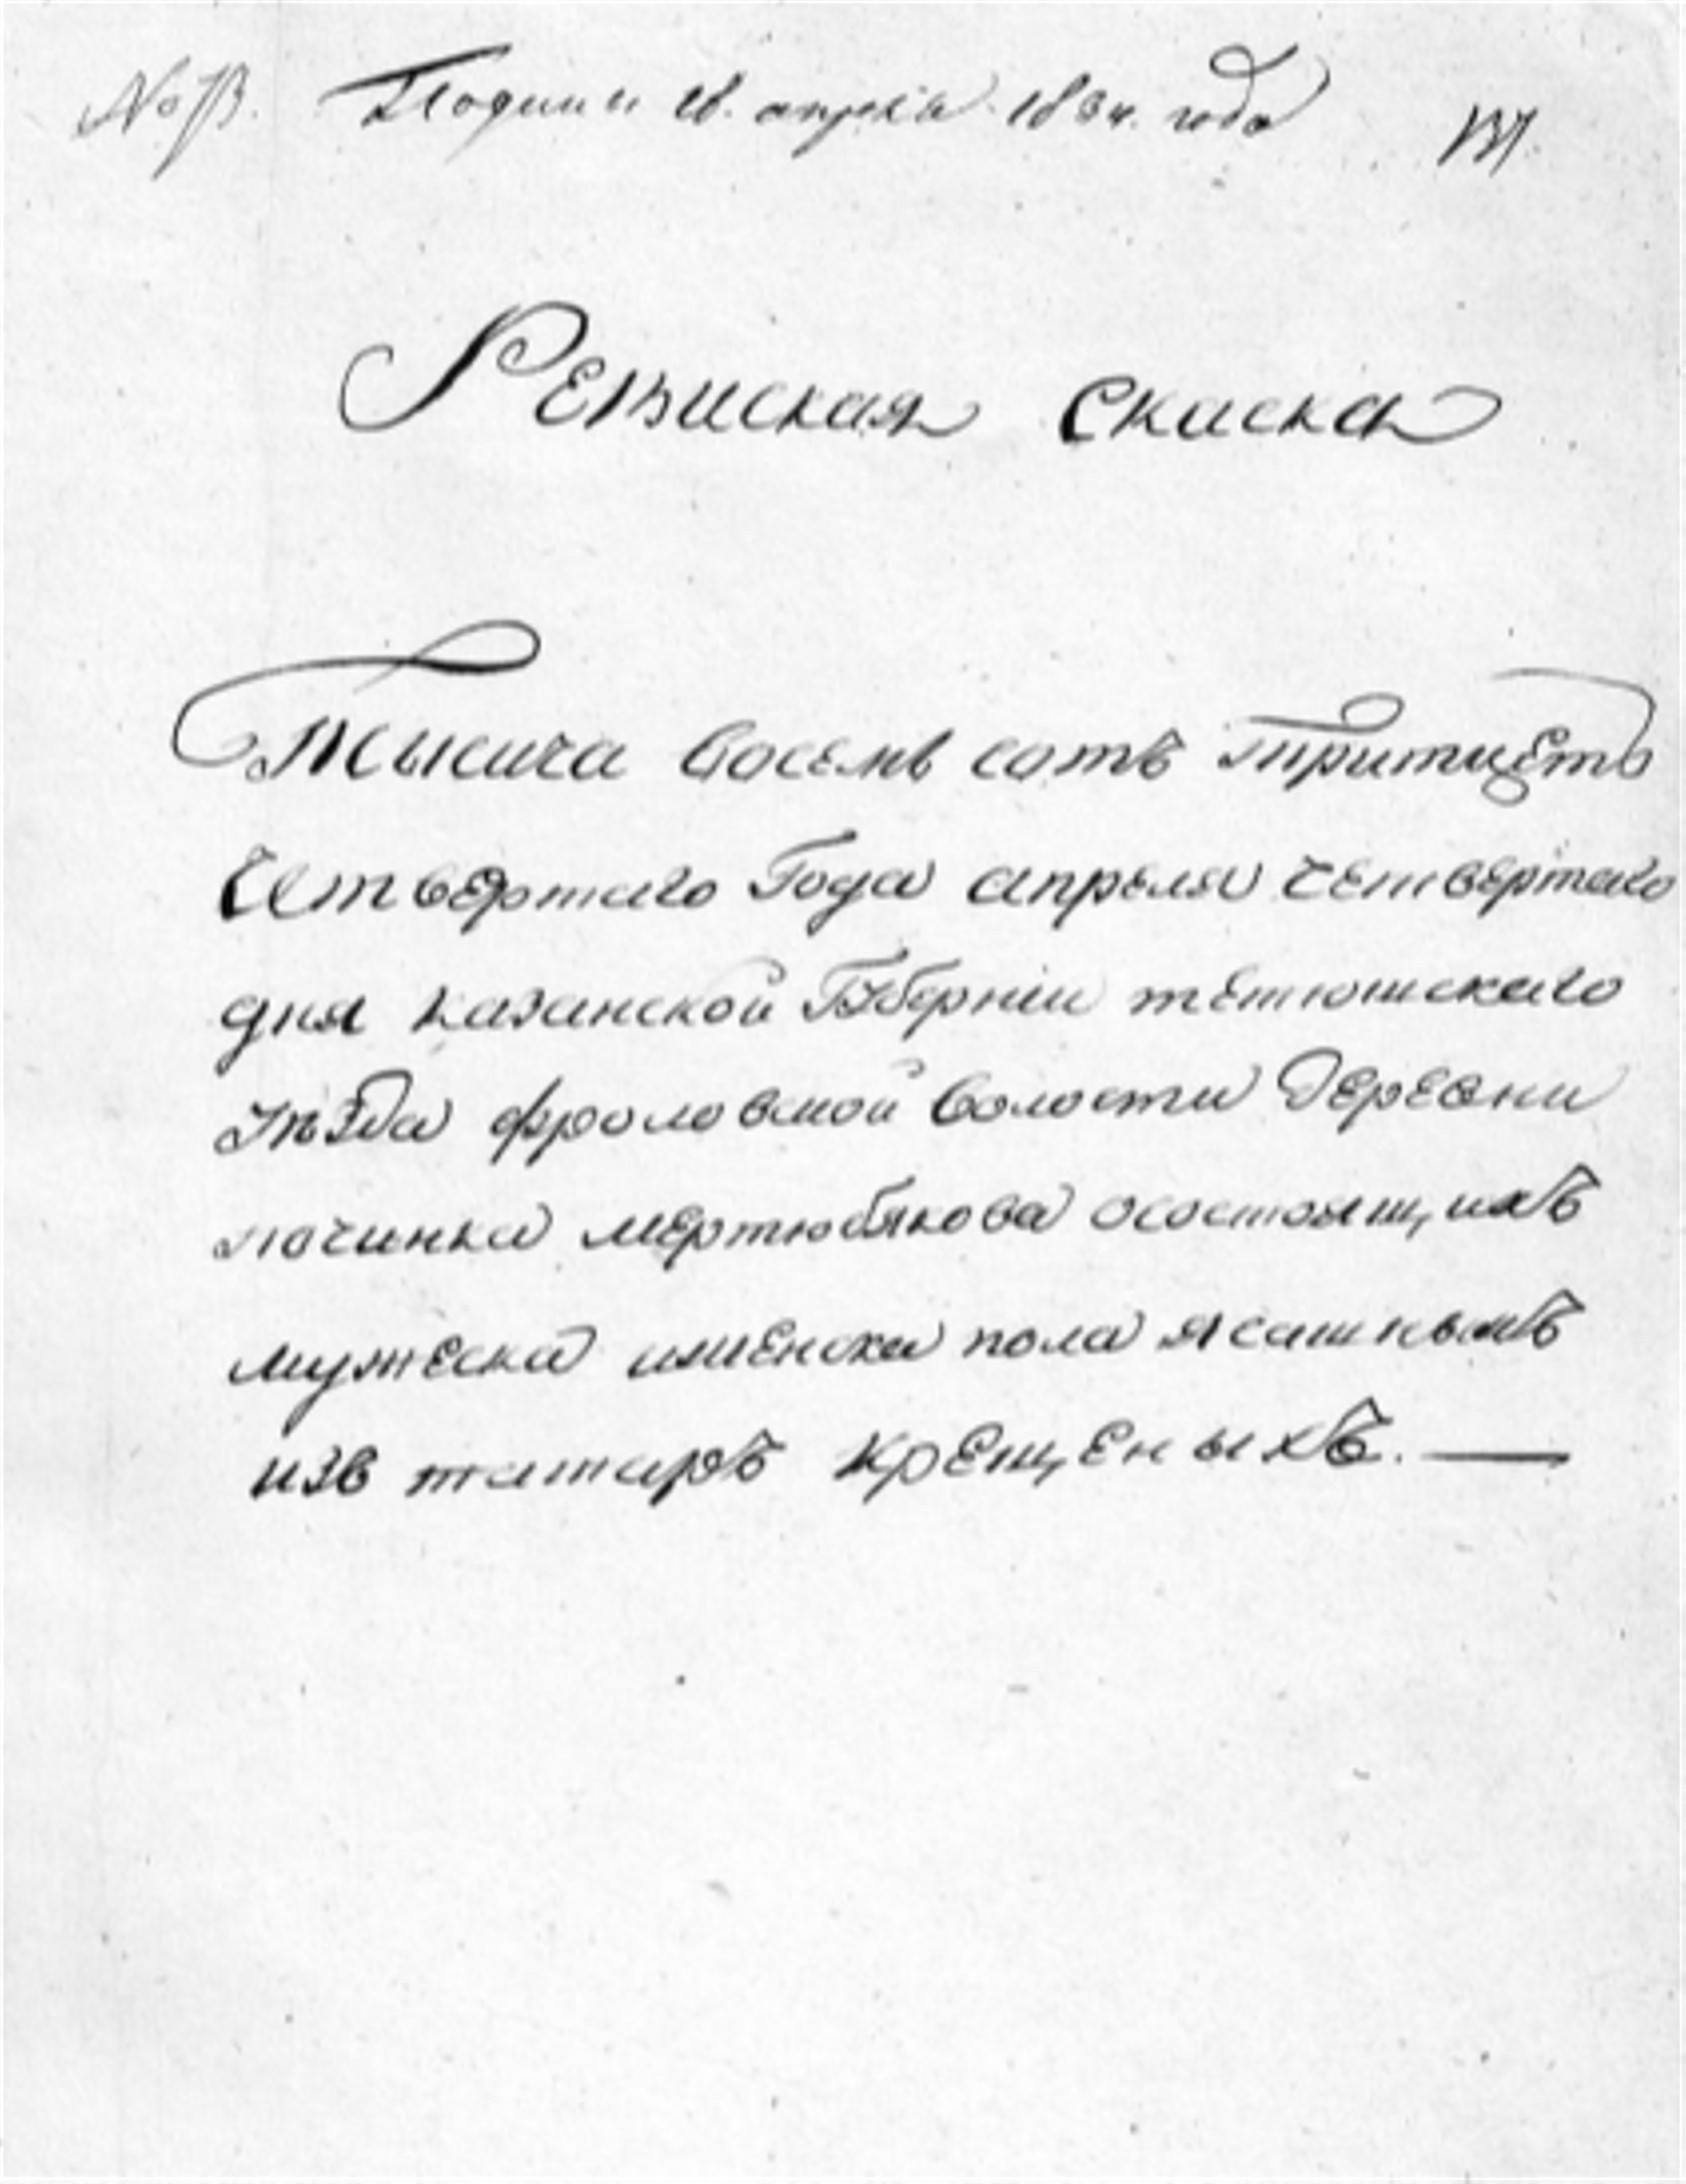 апреля 1834. года
Ревиская скаска
Тысяча восемь сотъ тритцеть
Четвертаго Года апреля четвертаго
дня казанской Губерніи тетюшскаго
уѣзда фроловской волости Деревни
починка мертюбякова осостоящихъ
мужеска иженска пола ясашныхъ
изъ татаръ крещеныхъ. —